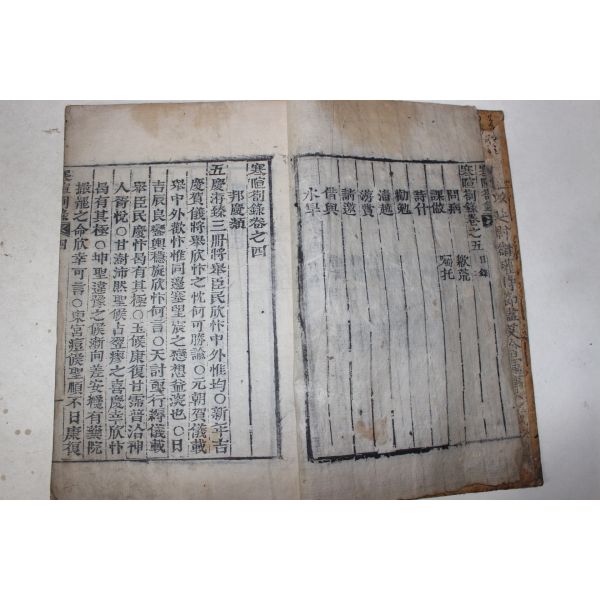 寒暄箚錄卷之五目錄
問病 歉荒
課做 囑托
詩什
勸勉
請邀
借與
寒暄箚錄卷之四
邦慶類
五慶海臻三冊將擧臣民欣忭中外惟均○新年吉
慶賀儀將擧欣忭之忱何可勝論○元朝賀儀載
擧中外歡忭惟同邊塞望宸之戀想益深也○日
吉辰良鑾輿穩旋欣忭何言○天討或行縟儀載
擧臣民慶忭曷有其極○玉候康復甘霈普洽神
人胥悅○甘澍沛然聖候占翌瘳之喜慶幸欣忭
曷有其極○坤聖違豫之候漸向差安纔有藥院
撤罷之命欣幸可言○東宮痘候聖順不日康復
寒暄箚錄 四